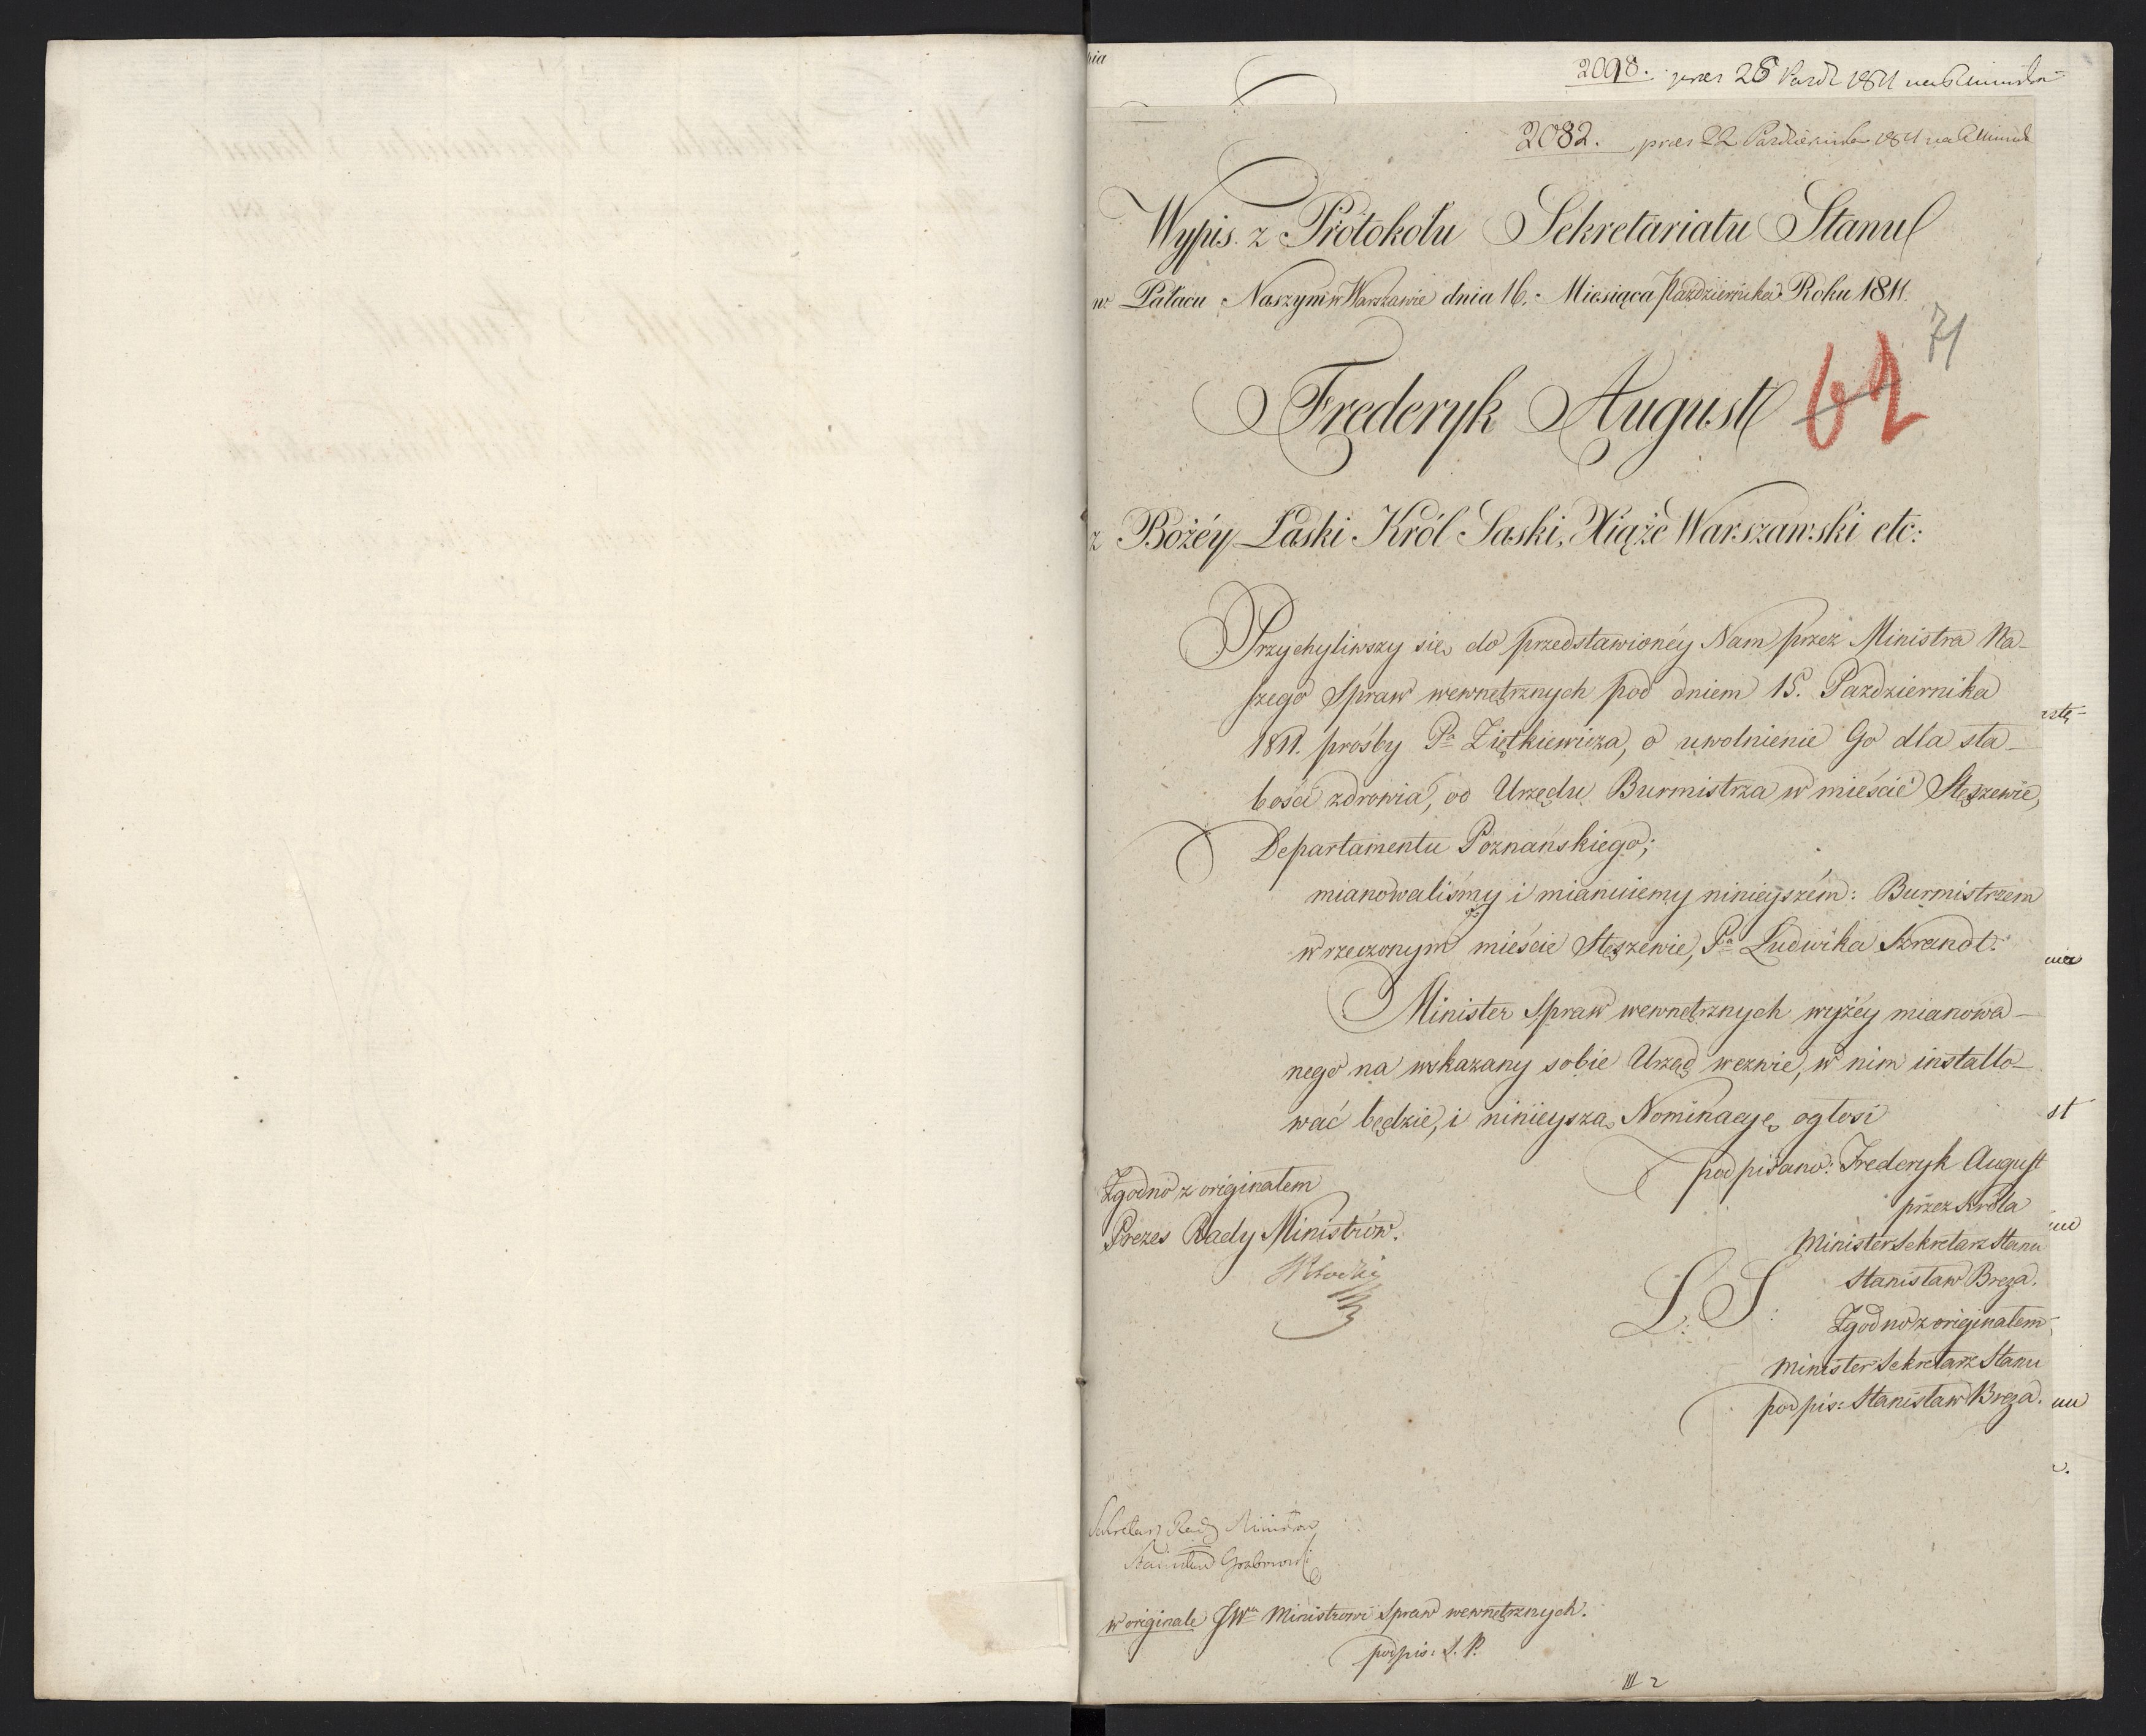 nia
2098. praes 26 Paźdź 1811 na R Ministrów
2082. praes 22 Października 1811 na R Ministr
Wypis z Protokołu Sekretariatu Stanu
w Pałacu Naszym w Warszawie dnia 16. Miesiąca Października Roku 1811.
71
62
Frederyk August
z Bożéy Łaski Król Saski, Xiążę Warszawski etc:
Przychyliwszy się do przedstawionéy Nam przez Ministra Na-
szego Spraw wewnętrznych pod dniem 15. Pazdziernika
1811. prośby Pa Ziętkiewicza, o uwolnienie Go dla sła-
bości zdrowia, od Urzędu Burmistrza w mieście Stęszewie,
Departamentu Poznańskiego;
mianowaliśmy i mianuiemy ninieyszém: Burmistrzem
w rzeczonym mieście Stęszewie, Pa Ludwika Krandt.
Minister Spraw wewnętrznych wyżéy mianowa-
nego na wskazany sobie Urząd wezwie, w nim installo-
wać będzie, i ninieyszą Nominacyę ogłosi
podpisano: Frederyk August
przez Króla
Minister Sekretarz Stanu
Stanisław Breza.
L. S.
Zgodno z originałem
Minister Sekretarz Stanu
podpis: Stanisław Breza.
Zgodno z originałem
Prezes Rady Ministrów.
Sekretarz Rady Ministrów
Stanisław Grabowski
w originale JWu Ministrowi Spraw wewnętrznych.
podpis: S. P.
III 2
st